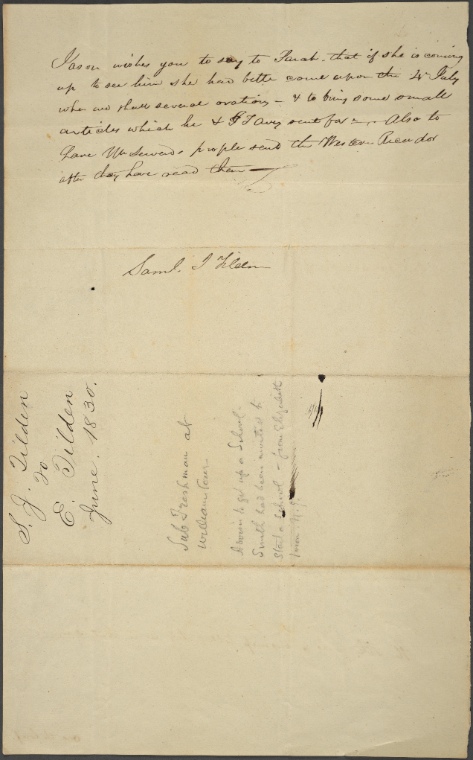 Jason wishes you to say to Sarah that if she is coming
up to see him she had bette come upon the 4th July
when we shall several orations – & to bring some small
articles which he & J T Avery sent for – Also to
have Mr Sewards people send the Western Recorder
after they have read them
Saml. J Tilden
S. J. Tilden
to
E. Tilden
June. 1830.
Sub Freshman at
Williamstown
to get up a School.
Smith had been invited to
start a school – from Elizabeth
N. J.